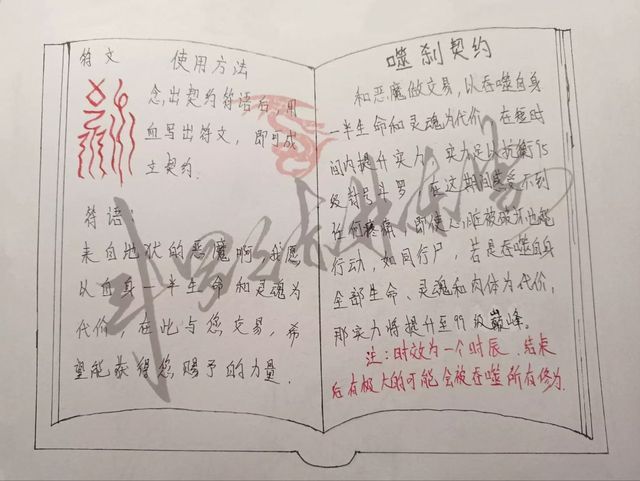 符文
使用方法
念出契约符语后,用
血写出符文,即可成
立契约.
符语:
来自地狱的恶魔啊,我愿
以自身一半生命和灵魂为
代价,在此与您交易,希
望能获得您赐予的力量.
噬刹契约
和恶魔做交易,以吞噬自身
一半生命和灵魂为代价,在短时
间内提升实力,实力足以抗衡95
级封号斗罗,在这期间感受不到
任何疼痛,即使人脏被破坏也能
行动,如同行尸,若是吞噬自身
全部生命、灵魂和肉体为代价,
那实力将提升至99级巅峰。
注:时效为一个时辰.结束
后有极大的可能会被吞噬所有修为.